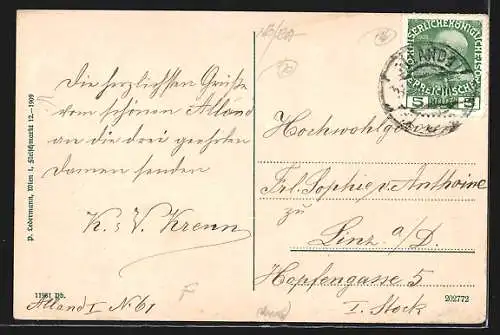 Die herzlichsten Grüße
vom schönen Alland
an die drei geehrten
Damen senden
K. & V. Krenn
Alland I N. 61
P. Ledermann, Wien I, Fleischmarkt 12.—1909
11981 Db.
KAISERLICHE KÖNIGLICHE
ÖSTERREICHISCHE
5 5
ALLAND
Hochwohlgeboren
Frl. Sophie v. Anthoine
zu
Linz a/D.
Hopfengasse 5
I. Stock
202772